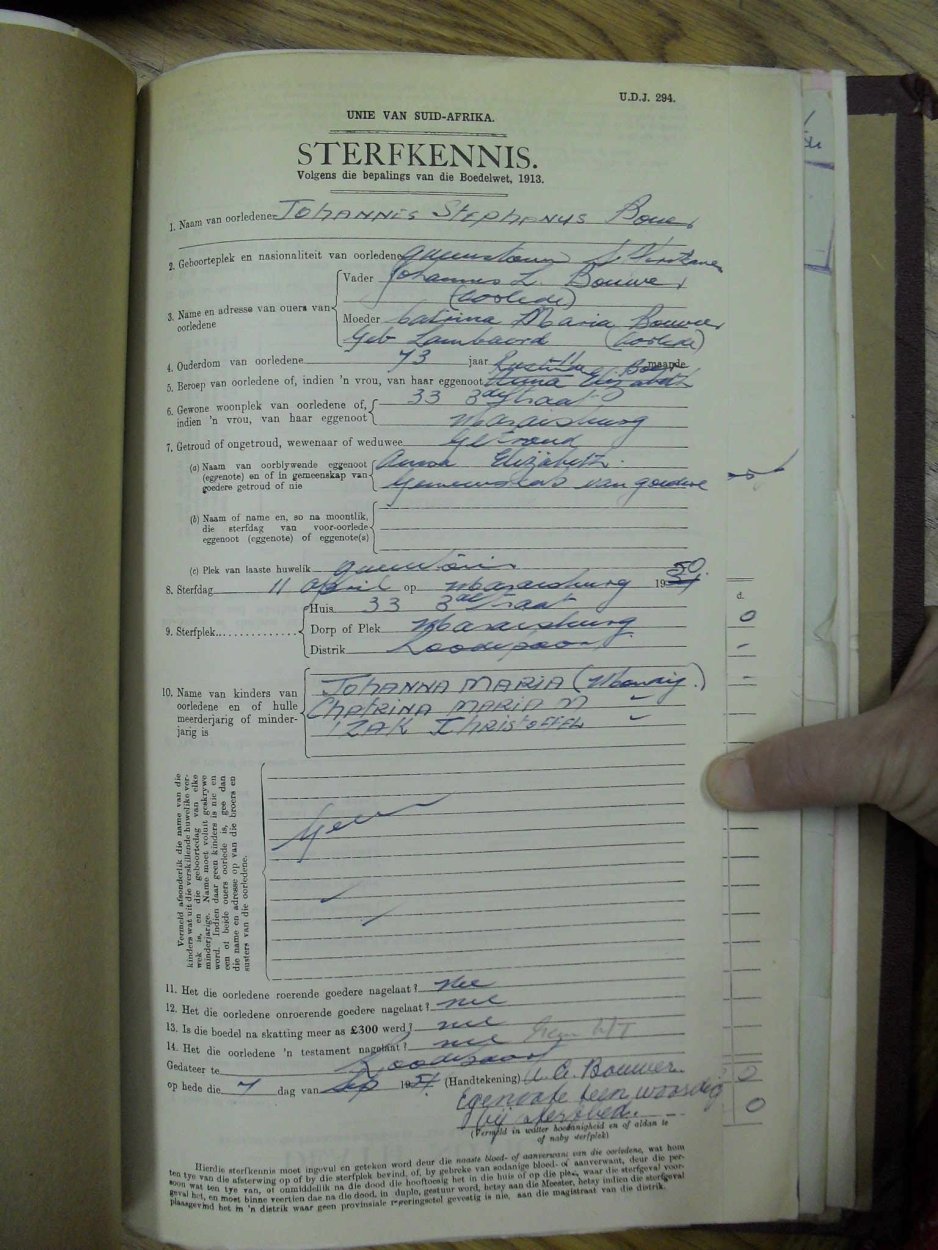 U.D.J. 294.
UNIE VAN SUID-AFRIKA.
STERFKENNIS.
Volgens die bepalings van die Boedelwet, 1913.
1. Naam van oorledene JOHANNES STEPHANUS Bouwer
2. Geboorteplek en nasionaliteit van oorledene Queenstown
3. Name en adresse van ouers van oorledene
Vader Johannes L. Bouwer
(Oorlede)
Moeder Catrina Maria Bouwer
Geb (Oorlede)
4. Ouderdom van oorledene 73 jaar maande
5. Beroep van oorledene of, indien 'n vrou, van haar eggenoot Anna Elizabeth
6. Gewone woonplek van oorledene of, indien 'n vrou, van haar eggenoot
33 3de Straat
Maraisburg
7. Getroud of ongetroud, wewenaar of weduwee Getroud
(a) Naam van oorblywende eggenoot (eggenote) en of in gemeenskap van goedere getroud of nie
Anna Elizabeth.
Gemeenskap van goedere
(b) Naam of name en, so na moontlik, die sterfdag van voor-oorlede eggenoot (eggenote) of eggenote(s)
(c) Plek van laaste huwelik
8. Sterfdag 11 April op Maraisburg 19 50.
9. Sterfplek
Huis 33 3de Straat
Dorp of Plek Maraisburg
Distrik Roodepoort
d.
0
10. Name van kinders van oorledene en of hulle meerderjarig of minderjarig is
JOHANNA MARIA
CHATRINA MARIA M
IZAK CHRISTOFFEL
Vermeld afsonderlik die name van die kinders wat uit die verskillende huwelike verwek is, en die geboortedag van elke minderjarige. Name moet voluit geskrywe word. Indien daar geen kinders is nie en een of beide ouers oorlede is, gee dan die name en adresse op van die broers en susters van die oorledene.
Geen
11. Het die oorledene roerende goedere nagelaat? nee
12. Het die oorledene onroerende goedere nagelaat? nee
13. Is die boedel na skatting meer as £300 werd? nee
14. Het die oorledene 'n testament nagelaat? nee
Gedateer te Roodepoort
op hede die 7 dag van Sep 1951 (Handtekening) A. E. Bouwer.
Egenoote teenwoordig
bij sterfbed.
(Vermeld in watter hoedanigheid en of aldan te of naby sterfplek)
0
0
Hierdie sterfkennis moet ingevul en geteken word deur die naaste bloed- of aanverwant van die oorledene, wat hom
ten tye van die afsterwing op of by die sterfplek bevind, of, by gebreke van sodanige bloed- of aanverwant, deur die per-
soon wat ten tye van, of onmiddellik na die dood die hooftoesig het in die huis of op die plek, waar die sterfgeval voor-
geval het, en moet binne veertien dae na die dood, in duplo, gestuur word, hetsy aan die Meester, hetsy indien die sterfgeval
plaasgevind het in 'n distrik waar geen provinsiale regeringsetel gevestig is nie, aan die magistraat van die distrik.